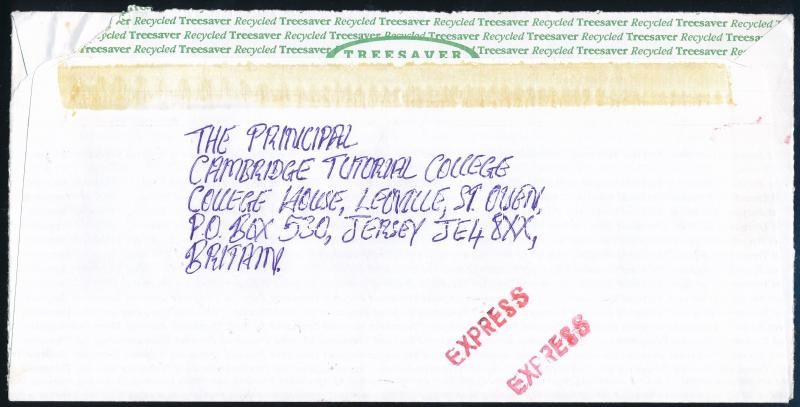 er Recycled Treesaver Recycled Treesaver Recycled Treesaver Recycled Treesaver Recycled Treesaver Recycled Treesaver Recycled T
Recycled Treesaver Recycled Treesaver Recycled Treesaver Recycled Treesaver Recycled Treesaver Recycled Treesaver Recycled Tree
Treesaver Recycled Treesaver Recycled Treesaver Treesaver Recycled Treesaver Recycled Treesaver Re
TREESAVER
THE PRINCIPAL
CAMBRIDGE TUTORIAL COLLEGE
COLLEGE HOUSE, LEOVILLE, ST. OUEN,
P.O. BOX 530, JERSEY JE4 8XX,
BRITAIN.
EXPRESS
EXPRESS